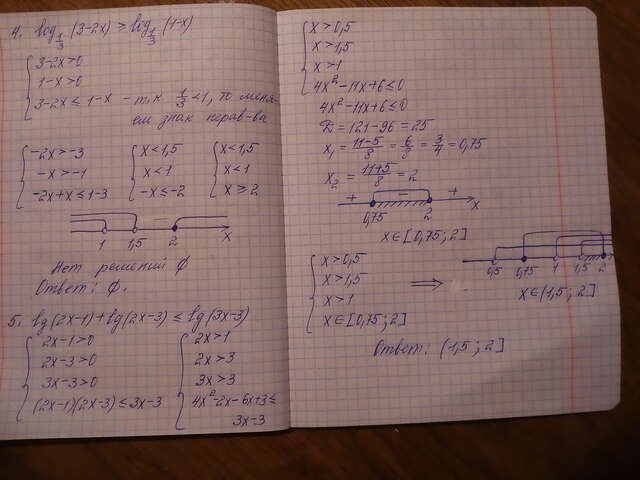 4. log_{1/3}(3-2x) ≥ log_{1/3}(1-x)
{ 3-2x>0
1-x>0
3-2x ≤ 1-x - т.к 1/3<1, то меня-
ем знак нерав-ва
{ -2x>-3
-x>-1
-2x+x ≤ 1-3
{ x<1,5
x<1
-x ≤ -2
{ x<1,5
x<1
x ≥ 2
1 1,5 2 x
Нет решений ∅
Ответ: ∅.
5. lg(2x-1)+lg(2x-3) ≤ lg(3x-3)
{ 2x-1>0
2x-3>0
3x-3>0
(2x-1)(2x-3) ≤ 3x-3
{ 2x>1
2x>3
3x>3
4x²-2x-6x+3 ≤
3x-3
{ x>0,5
x>1,5
x>1
4x²-11x+6 ≤ 0
4x²-11x+6 ≤ 0
D = 121-96 = 25
x₁ = (11-5)/8 = 6/8 = 3/4 = 0,75
x₂ = (11+5)/8 = 2
+ - +
0,75 2 x
x∈[0,75; 2]
{ x>0,5
x>1,5
x>1
x∈[0,75; 2]
⇒
0,5 0,75 1 1,5 2
x∈(1,5; 2]
Ответ: (1,5; 2]